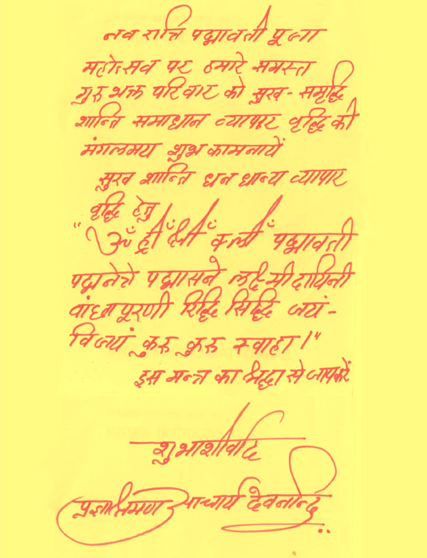 नव रात्रि पद्मावती पूजा
महोत्सव पर हमारे समस्त
गुरु भक्त परिवार को सुख - समृद्धि
शान्ति समाधान व्यापार वृद्धि की
मंगलमय शुभ कामनायें
सुख शान्ति धन धान्य व्यापार
वृद्धि हेतु
"ॐ ह्रीँ श्रीँ क्लीँ पद्मावती
पद्मनेत्रे पद्मासने लक्ष्मी दायिनी
वांछापूरणी रिद्धि सिद्धि जयं -
विजयं कुरु कुरु स्वाहा ।"
इस मन्त्र का श्रद्धा से जाप करें
शुभाशीर्वाद
प्रज्ञाश्रमण आचार्य देवनन्दि